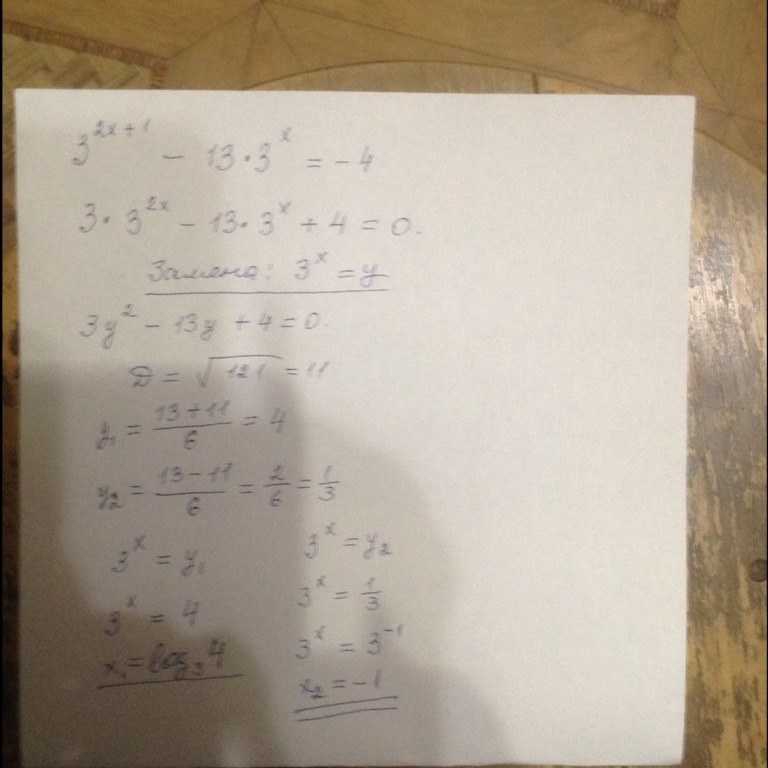 3^{2x+1} - 13·3^x = -4
3·3^{2x} - 13·3^x + 4 = 0.
Замена: 3^x = y
3y^2 - 13y + 4 = 0.
D = √121 = 11
y₁ = \frac{13+11}{6} = 4
y₂ = \frac{13-11}{6} = \frac{2}{6} = \frac{1}{3}
3^x = y₁
3^x = 4
x₁ = log₃4
3^x = y₂
3^x = \frac{1}{3}
3^x = 3^{-1}
x₂ = -1